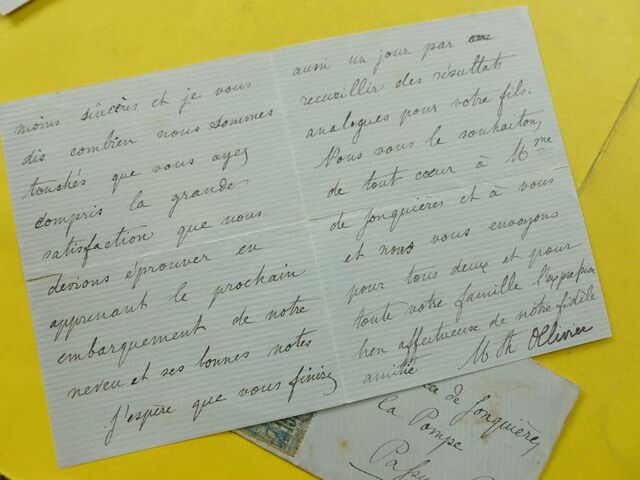 moins sincères et je vous
dis combien nous sommes
touchés que vous ayez
compris la grande
satisfaction que nous
devions éprouver en
apprenant le prochain
embarquement de notre
neveu et ses bonnes notes
J'espère que vous finirez
aussi un jour par
recueillir des résultats
analogues pour votre fils.
Nous vous le souhaitons
de tout cœur à Mme
de Jonquières et à vous
et nous vous envoyons
pour tous deux et pour
toute votre famille l'expression
bien affectueuse de notre fidèle
amitié M Th Olivier
de Jonquières
la Pompe
Passy
15